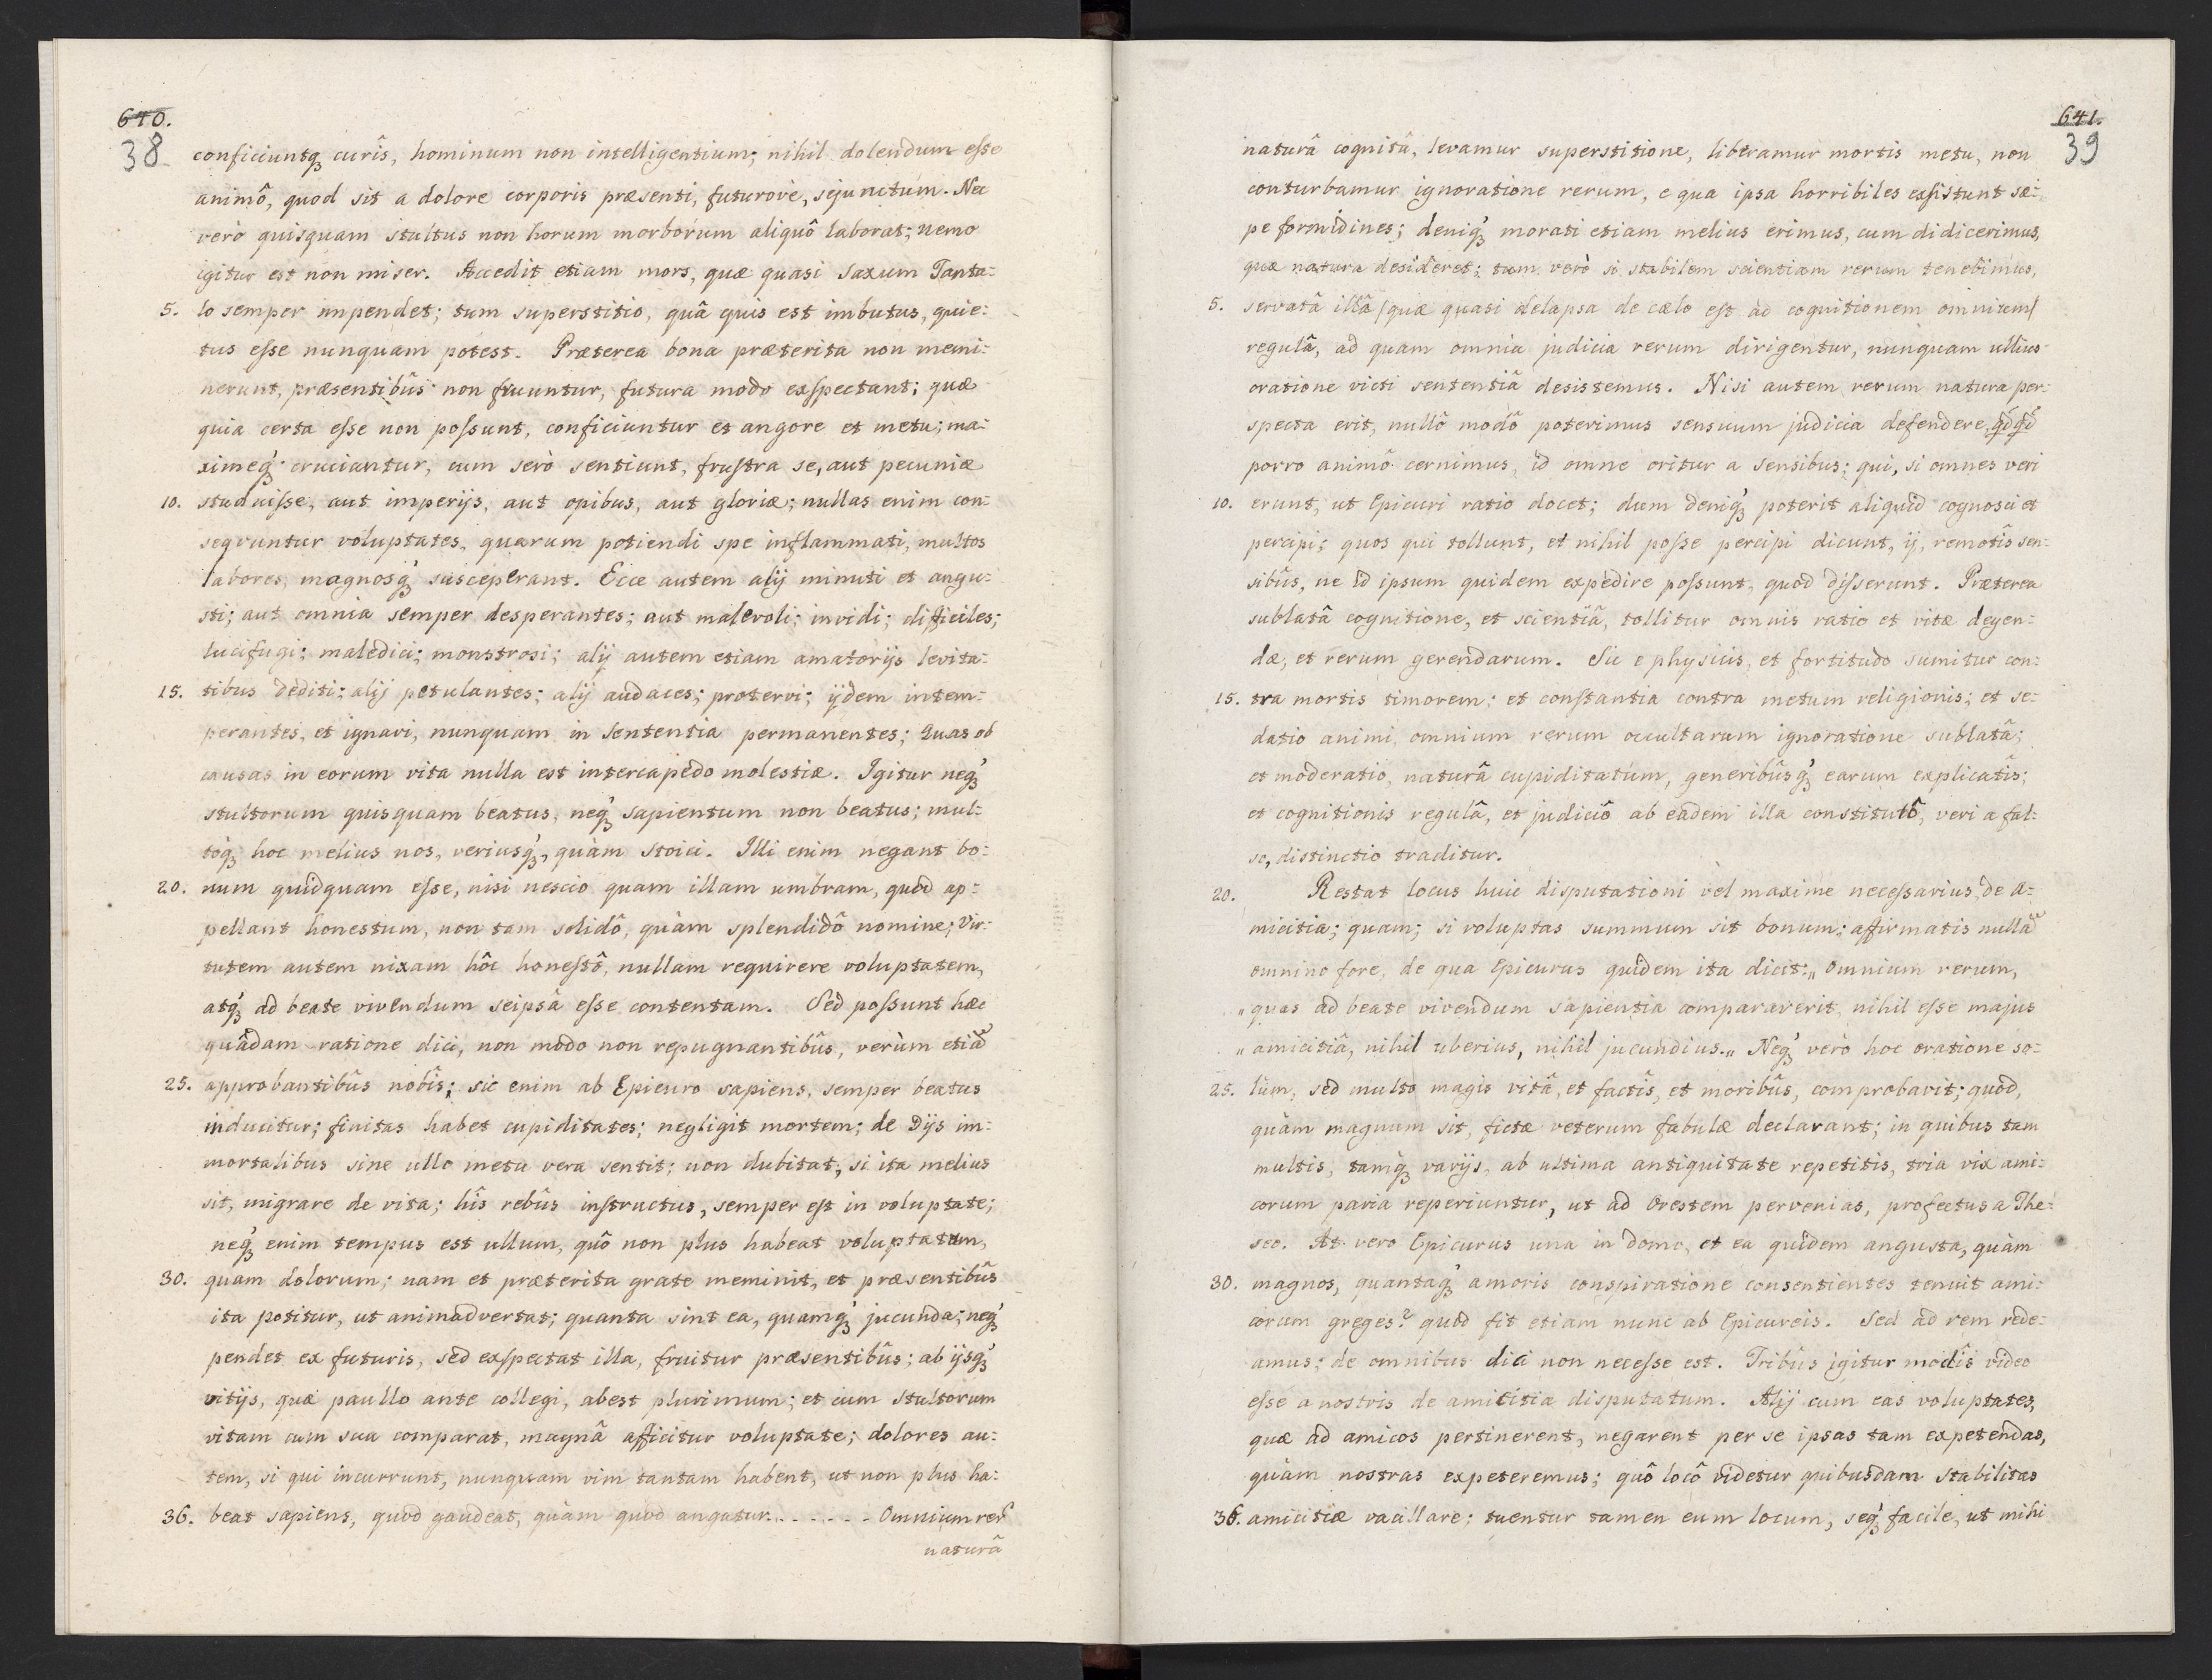 640.
38
conficiuntq́ʒ curîs, hominum non intelligentium; nihil dolendum eſse
animô, quod sit a dolore corporis præsenti, futurove, sejunctum. Nec
verò quisquam stultus non horum morborum aliquô laborat; nemo
igitur est non miser. Accedit etiam mors, quæ quasi saxum Tanta=
5. lo semper impendet; tum superstitio, quâ quis est imbutus, quie=
tus eſse nunquam potest. Præterea bona præterita non memi=
nerunt, præsentibûs non fruuntur, futura modo exſpectant; quæ
quia certa eſse non poſsunt, conficiuntur et angore et metu; ma=
ximeq́ʒ cruciantur, cum serò sentiunt, fruſtra se, aut pecuniæ
10. studuiſse, aut imperijs, aut opibus, aut gloriæ; nullas enim con=
seqvuntur voluptates, quarum potiendi spe inflammati, multos
labores, magnosq́ʒ susceperant. Ecce autem alij minuti et angu=
sti; aut omnia semper desperantes; aut malevoli; invidi; difficiles;
lucifugi; maledici; monstrosi; alij autem etiam amatorijs levita=
15. tibus dediti; alij petulantes; alij audaces; protervi; ijdem intem=
perantes, et ignavi, nunquam in sententia permanentes; Quas ob
causas in eorum vita nulla est intercapedo molestiæ. Igitur neq́ʒ
stultorum quisquam beatus, neq́ʒ sapientum non beatus; mul=
toq́ʒ hoc melius nos, veriusq́ʒ, quàm stoici. Illi enim negant bo=
20. num quidquam eſse, nisi nescio quam illam umbram, quod ap=
pellant honestum, non tam solidô, quàm splendidô nomine; Vir=
tutem autem nixam hôc honeſtô, nullam requirere voluptatem,
atq́ʒ ad beate vivendum seipsâ eſse contentam. Sed poſsunt hæc
quâdam ratione dici, non modo non repugnantibûs, verùm etiã
25. approbantibûs nobîs; sic enim ab Epicuro sapiens, semper beatus
inducitur; finitas habet cupiditates; negligit mortem; de Dijs im=
mortalibus sine ullo metu vera sentit; non dubitat, si ita melius
sit, migrare de vita; hîs rebûs inſtructus, semper eſt in voluptate;
neq́ʒ enim tempus est ullum, quô non plus habeat voluptatum,
30. quam dolorum; nam et præterita grate meminit, et præsentibûs
ita potitur, ut animadvertat; quanta sint ea, quamq́ʒ jucunda; neq́ʒ
pendet ex futuris, sed exſpectat illa, fruitur præsentibûs; ab ijsq́ʒ
vitijs, quæ paullo ante collegi, abest plurimum; et cum stultorum
vitam cum sua comparat, magnâ afficitur voluptate; dolores au=
tem, si qui incurrunt, nunquam vim tantam habent, ut non plus ha=
36. beat sapiens, quod gaudeat, quàm quod angatur. . . . . . . Omnium rer̃
naturâ
641.
39
naturâ cognitâ, levamur superstitione, liberamur mortis metu, non
conturbamur ignoratione rerum, e qua ipsa horribiles exſistunt sæ=
pe formidines; deniq́ʒ morati etiam melius erimus, cum didicerimus,
quæ natura desideret; tum verò si stabilem scientiam rerum tenebimus,
5. servatâ illâ /quæ quasi delapsa de cælo eſt ad cognitionem omnium/
regulâ, ad quam omnia judicia rerum dirigentur, nunquam ullius
oratione victi sententiâ desistemus. Nisi autem rerum natura per=
specta erit, nullô modô poterimus sensuum judicia defendere, qd́qd́
porro animô cernimus, id omne oritur a sensibus; qui, si omnes veri
10. erunt, ut Epicuri ratio docet; dum deniq́ʒ poterit aliquid cognosci et
percipi; quos qui tollunt, et nihil poſse percipi dicunt, ij, remotîs sen=
sibûs, ne id ipsum quidem expedire poſsunt, quod diſserunt. Præterea
sublatâ cognitione, et scientiâ, tollitur omnis ratio et vitæ degen=
dæ, et rerum gerendarum. Sic e physicis, et fortitudo sumitur con=
15. tra mortis timorem; et conſtantia contra metum religionis; et se=
datio animi, omnium rerum occultarum ignoratione sublatâ;
et moderatio, naturâ cupiditatum, generibûsq́ʒ earum explicatîs;
et cognitionis regulâ, et judiciô ab eadem illa constitutô, veri a fal=
so, distinctio traditur.
20. Restat locus huic disputationi vel maxime neceſsarius, de a=
micitia; quam; si voluptas summum sit bonum; affirmatis nullã
omnino fore, de qua Epicurus quidem ita dicit: „Omnium rerum,
„quas ad beate vivendum sapientia comparaverit, nihil eſse majus
„amicitiâ, nihil uberius, nihil jucundius.„ Neq́ʒ verò hoc oratione so=
25. lùm, sed multo magis vitâ, et factîs, et moribûs, comprobavit; quod,
quàm magnum sit, fictæ veterum fabulæ declarant; in quibus tam
multis, tamq́ʒ varijs, ab ultima antiquitate repetitis, tria vix ami=
corum paria reperiuntur, ut ad Orestem pervenias, profectus a The=
seo. At vero Epicurus una in domo, et ea quidem angusta, quàm
30. magnos, quantaq́ʒ amoris conspiratione consentientes tenuit ami=
corum greges? quod fit etiam nunc ab Epicureis. Sed ad rem rede=
amus; de omnibus dici non neceſse est. Tribûs igitur modîs video
eſse a nostris de amicitia disputatum. Alij cum eas voluptates,
quæ ad amicos pertinerent, negarent per se ipsas tam expetendas,
quàm nostras expeteremus; quô locô videtur quibusdam stabilitas
36. amicitiæ vacillare; tuentur tamen eum locum, seq́ʒ facile, ut mihi